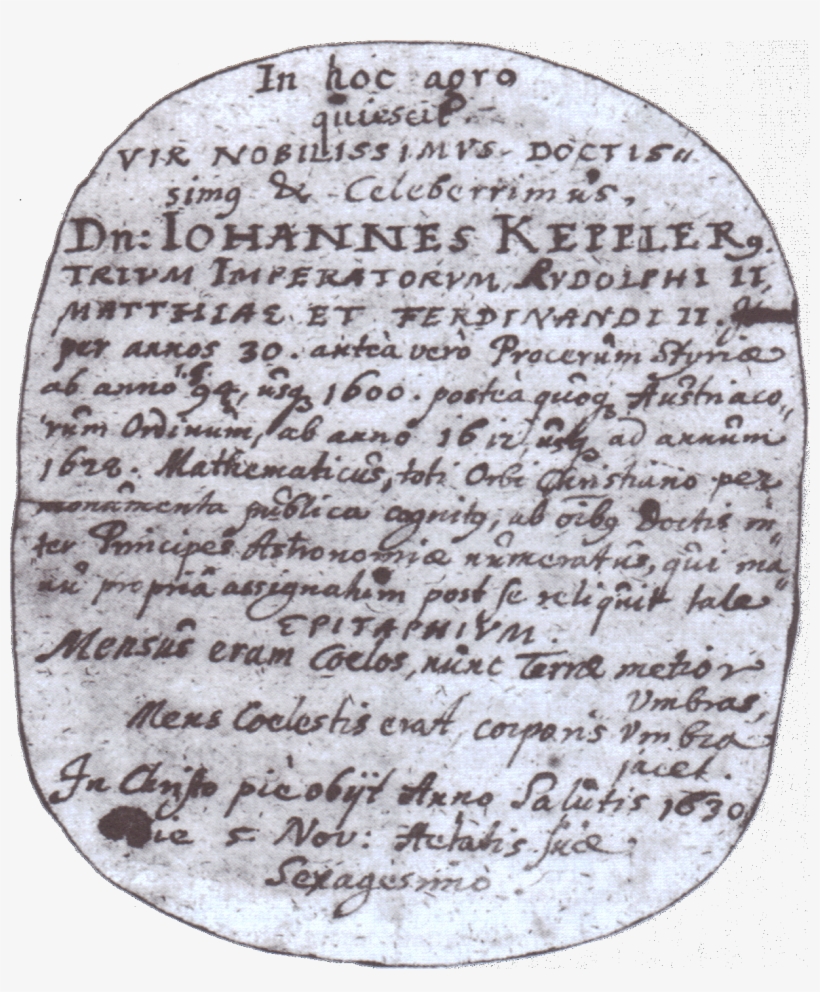 In hoc agro
quiescit
VIR NOBILISSIMVS DOCTIS〃
simꝰ & Celeberrimus,
Dn: IOHANNES KEPPLERꝰ.
TRIVM IMPERATORVM RVDOLPHI II,
MATTHIAE ET FERDINANDI II.
per annos 30. anteà verò Procerum Styriæ
ab anno 94, usqꝫ 1600. posteà quoqꝫ Austriaco〃
rum Ordinum, ab anno 1612 usqꝫ ad annum
1628. Mathematicus, toti Orbi Christiano per
monumenta publica cognitꝰ, ab oībꝰ Doctis in〃
ter Principes Astronomiæ numeratus, qui ma〃
nu propriâ assignatum post se reliquit tale
EPITAPHIVM.
Mensus eram Coelos, nunc Terræ metior
Vmbras,
Mens Coelestis erat, corporis Vmbra
jacet.
In Christo piè obijt Anno Salutis 1630,
die 5 Nov: Aetatis suæ
Sexagesimo